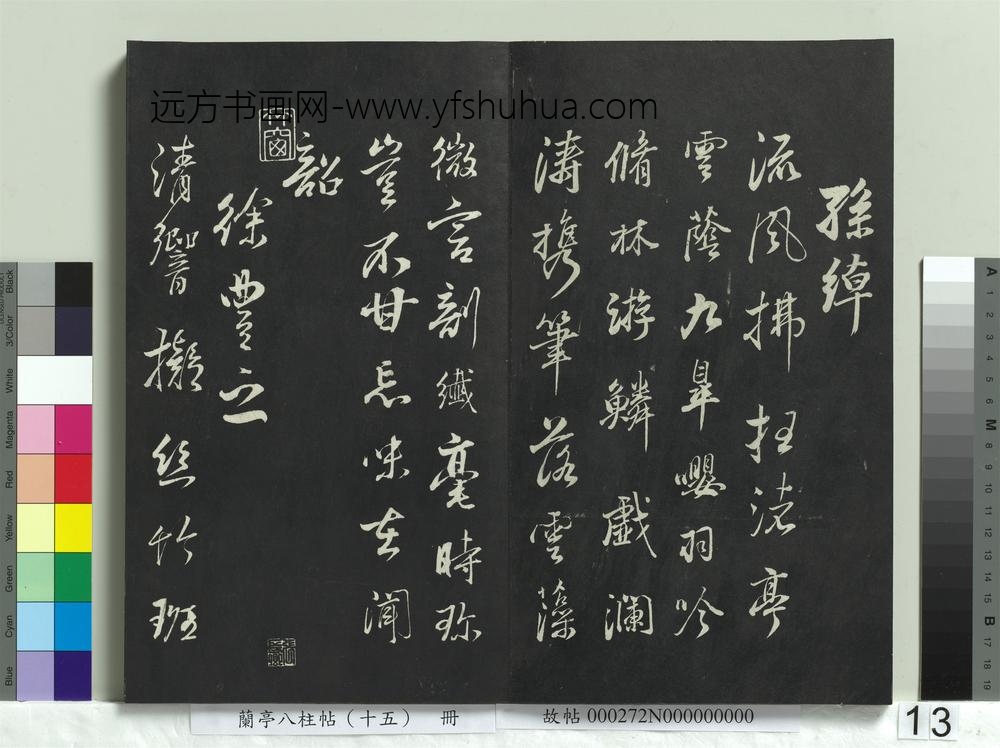 远方书画网-www.yfshuhua.com
孫綽
流風拂枉渚亭
雲蔭九皐嚶羽吟
脩林游鱗戲瀾
濤攜筆落雲藻
微言剖纖毫時珍
豈不甘忘味在聞
韶
徐豐之
清響擬絲竹班
蘭亭八柱帖（十五） 冊
故帖000272N000000000
13
Black
3/Color
White
Magenta
Red
Yellow
Green
Cyan
Blue
A
1
2
3
4
5
6
M
8
9
10
11
12
13
14
15
B
17
18
19